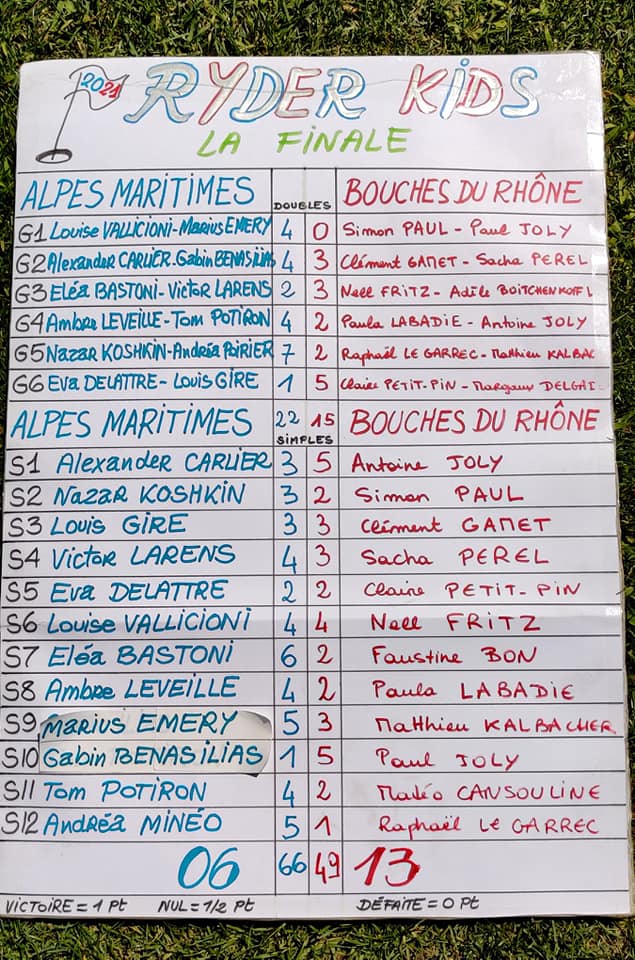 2021 RYDER KIDS
LA FINALE
ALPES MARITIMES DOUBLES BOUCHES DU RHÔNE
G1 Louise VALLICIONI-Marius EMERY 4 0 Simon PAUL - Paul JOLY
G2 Alexander CARLIER-Gabin BENASILIAS 4 3 Clément GAMET - Sacha PEREL
G3 Eléa BASTONI-Victor LARENS 2 3 Nell FRITZ - Adèle BOITCHENKOFF
G4 Ambre LEVEILLE-Tom POTIRON 4 2 Paula LABADIE - Antoine JOLY
G5 Nazar KOSHKIN-Andréa POIRIER 7 2 Raphaël LE GARREC - Matthieu KALBAC
G6 Eva DELATTRE-Louis GIRE 1 5 Claire PETIT-PIN - Margaux
ALPES MARITIMES 22 15 BOUCHES DU RHÔNE
SIMPLES
S1 Alexander CARLIER 3 5 Antoine JOLY
S2 Nazar KOSHKIN 3 2 Simon PAUL
S3 Louis GIRE 3 3 Clément GAMET
S4 Victor LARENS 4 3 Sacha PEREL
S5 Eva DELATTRE 2 2 Claire PETIT-PIN
S6 Louise VALLICIONI 4 4 Nell FRITZ
S7 Eléa BASTONI 6 2 Faustine BON
S8 Ambre LEVEILLE 4 2 Paula LABADIE
S9 Marius EMERY 5 3 Matthieu KALBACHER
S10 Gabin BENASILIAS 1 5 Paul JOLY
S11 Tom POTIRON 4 2 Madéo CANSOULINE
S12 Andréa MINÉO 5 1 Raphaël LE GARREC
06 66 49 13
VICTOIRE = 1 Pt NUL = 1/2 Pt DÉFAITE = 0 Pt